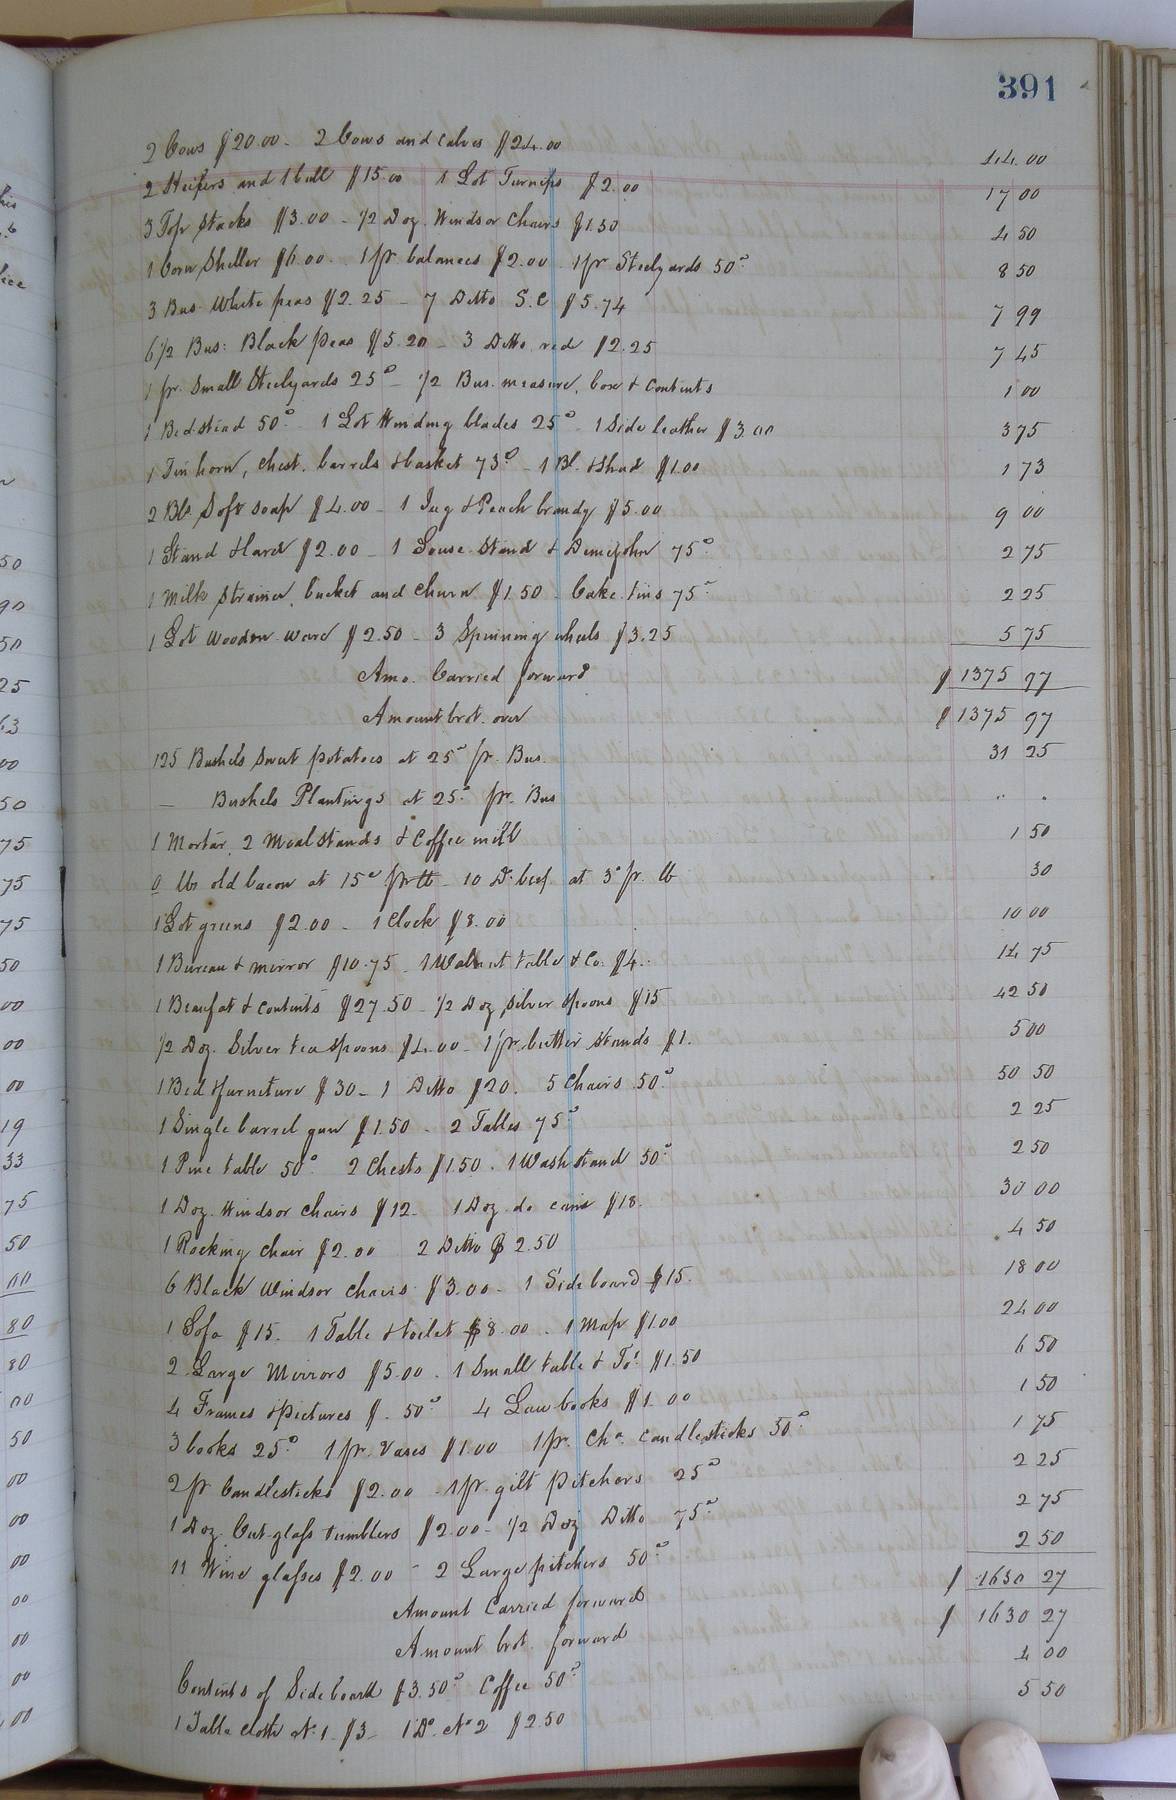 391
2 Cows $20.00 - 2 Cows and calves $24.00 44.00
2 Heifers and 1 bull $15.00 1 Lot Turnips $2.00 17 00
3 Top Stacks $3.00 - 1/2 Doz. Windsor Chairs $1.50 4 50
1 Corn Sheller $6.00 .. 1 pr balances $2.00 1 pr Steelyards 50c 8 50
3 Bus. White peas $2.25 - 7 Ditto S.C $5.74 7 99
6 1/2 Bus: Black Peas $5.20 - 3 Ditto red $2.25 7 45
1 pr. Small Steelyards 25c - 1/2 Bus. measure, box & contents 1 00
1 Bedstead 50c 1 Lot Winding blades 25c 1 Side leather $3.00 3 75
1 Tin horn, Chest, barrels & basket 73c - 1 Bl. & Shad $1.00 1 73
2 Bls Soft soap $4.00 - 1 Jug & Peach brandy $5.00 9 00
1 Stand & Lard $2.00 - 1 Stand & Demijohn 75c 2 75
1 Milk Strainer, bucket and Churn $1.50 - Cake tins 75c 2 25
1 Lot Wooden Ware $2.50 - 3 Spinning wheels $3.25 5 75
Amo. Carried forward $ 1375 97
Amount brot. over $ 1375 97
125 Bushels Sweet potatoes at 25c pr. Bus. 31 25
— Bushels Plantings at 25c pr. Bus .. .
1 Mortar, 2 Meal stands & Coffee mill 1 50
0 lbs old bacon at 15c pr lb - 10 Do beef at 3c pr. lb 30
1 Lot greens $2.00 - 1 Clock $8.00 10 00
1 Bureau & mirror $10.75 - 1 Walnut table & Co. $4. 14 75
1 Beaufat & contents $27.50 - 1/2 Doz Silver spoons $15 42 50
1/2 Doz. Silver tea spoons $4.00 - 1 pr. butter Stands $1. 5 00
1 Bed & furniture $30 - 1 Ditto $20. 5 Chairs 50c 50 50
1 Single barrel gun $1.50 - 2 Tables 75c 2 25
1 Pine table 50c 2 Chests $1.50. 1 Wash stand 50c 2 50
1 Doz. Windsor Chairs $12. 1 Doz. do cane $18. 30 00
1 Rocking Chair $2.00 2 Ditto $2.50 4 50
6 Black Windsor chairs $3.00 - 1 Sideboard $15. 18 00
1 Sofa $15. 1 Table & toilet $8.00 . 1 Map $1.00 24 00
2 Large Mirrors $5.00 . 1 Small table & $1.50 6 50
4 Frames & Pictures $ .50c 4 Law books $1.00 1 50
3 books 25c 1 pr. Vases $1.00 1 pr. Cha. Candlesticks 50c 1 75
2 pr Candlesticks $2.00 - 1 pr. gilt Pitchers 25c 2 25
1 Doz. Cut-glass tumblers $2.00 - 1/2 Doz Ditto 75c 2 75
11 Wine glasses $2.00 - 2 Large pitchers 50c 2 50
Amount Carried forward $ 1630 27
Amount brot. forward $ 1630 27
Contents of Sideboard $3.50c Coffee 50c 4 00
1 Table cloth No. 1 $3 - 1 Do. No 2 $2.50 5 50